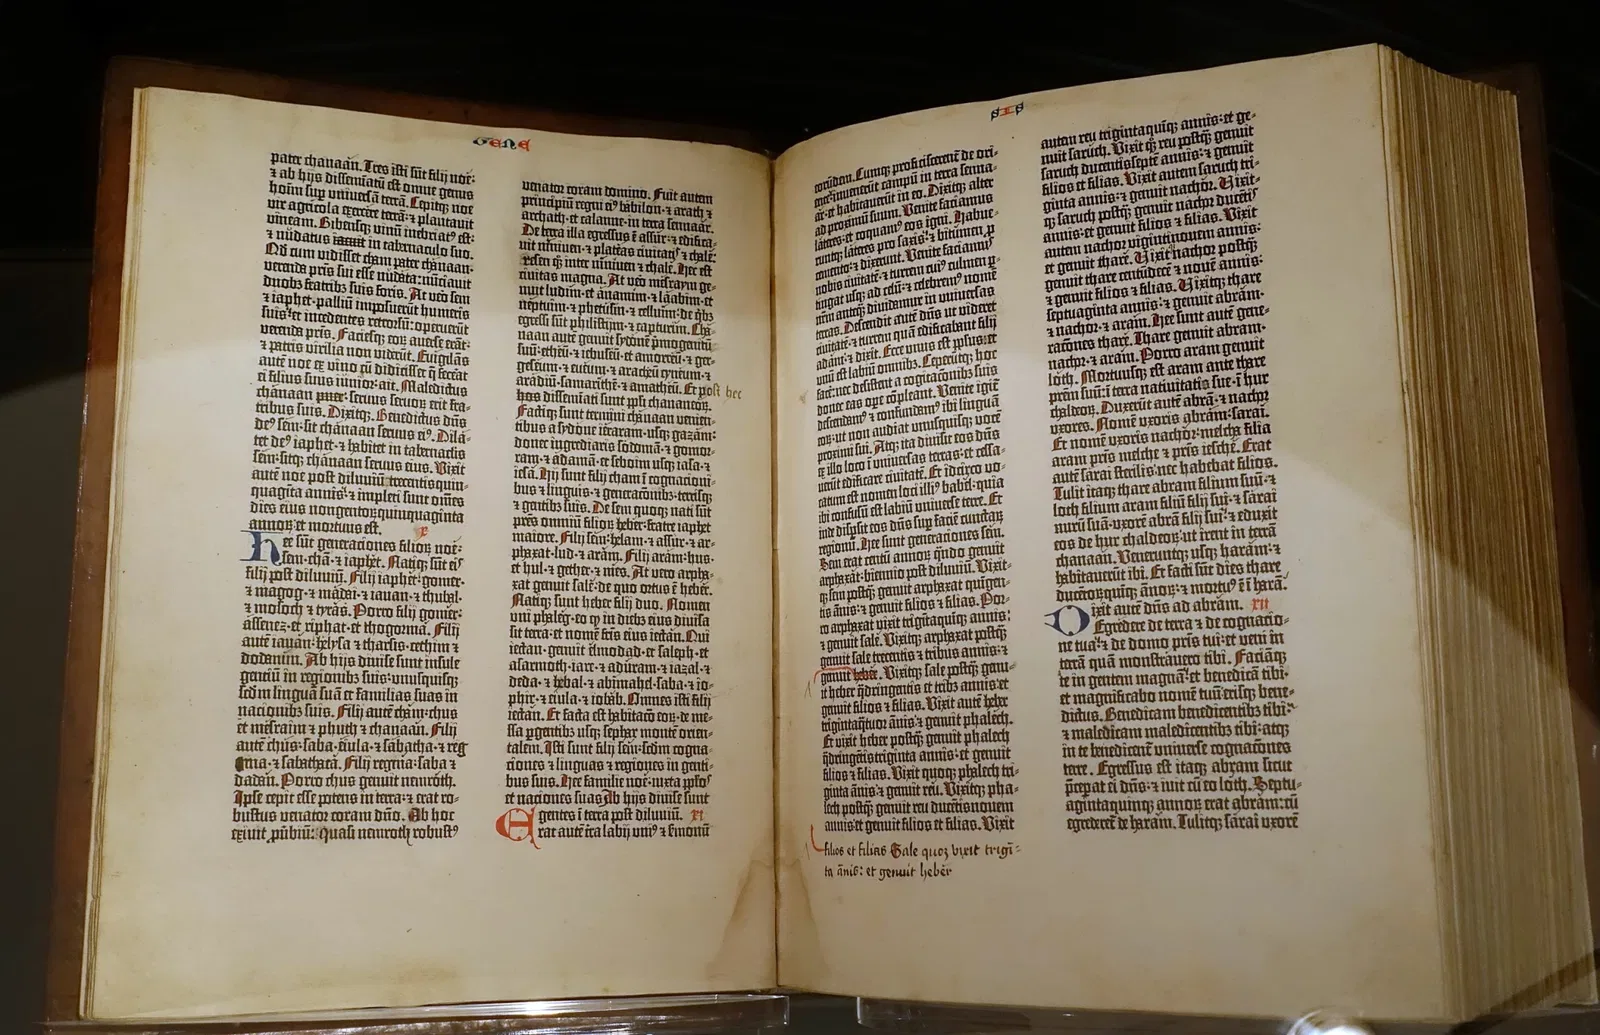 GENE
pater chanaan. Tres isti sūt filij noe:
⁊ ab hijs disseminatū est omne genus
hoīm sup universā terrā. Cepitq; noe
vir agricola exercere terrā: ⁊ plantavit
vineam. Bibensq; vinū inebriatꝰ est:
⁊ nudatus in tabernaculo suo.
Qd cum vidisset cham pater chanaan:
verenda pris sui esse nudata: nūciavit
duobz fratribz suis foris. At vero sem
⁊ iaphet palliū imposuerūt humeris
suis: et incedentes retrorsū: operuerūt
verenda pris. Faciesq; eoꝝ averse erāt:
⁊ patris virilia non viderūt. Evigilās
autē noe ex vino cū didicisset q̄ fecerat
ei filius suus iunior: ait. Maledictus
chanaan: servus servoꝝ erit fra-
tribus suis. Dixitq;. Benedictus dn̄s
deꝰ sem: sit chanaan servus eiꝰ. Dila-
tet deꝰ iaphet: ⁊ habitet in tabernaclis
sem: sitq; chanaan servus eius. Vixit
autē noe post diluviū trecentis quin-
quaginta annis: ⁊ impleti sunt om̄es
dies eius nongentoꝝ quinquaginta
annoꝝ: et mortuus est.
Hee sūt generaciones filioꝝ noe:
sem chā ⁊ iaphet. Natiq; sūt eis
filij post diluviū. Filij iaphet: gomer
⁊ magog ⁊ madai ⁊ iavan ⁊ thubal
⁊ mosoch ⁊ tyras. Porro filij gomer:
assenez et riphat et thogorma. Filij
autē iavan: helysa ⁊ tharsis: cethim ⁊
dodanim. Ab hijs divise sunt insule
genciū in regionibz suis: unusquisq;
scdm linguā suā et familias suas in
nacionibz suis. Filij autē cham: chus
et mesraim ⁊ phuth ⁊ chanaan. Filij
autē chus: saba ⁊ evila ⁊ sabatha ⁊ reg
ma ⁊ sabathaca. Filij regma: saba ⁊
dadan. Porro chus genuit nemroth.
Ipse cepit esse potens in terra: ⁊ erat ro-
bustus venator coram dn̄o. Ab hoc
exivit pv̄biū: quasi nemroth robustꝰ
venator coram domino. Fuit autem
principiū regni eiꝰ babilon: ⁊ arach ⁊
archath et calanne: in terra sennaar.
De terra illa egressus ē assur: ⁊ edifica-
vit niniven ⁊ plateas civitatis ⁊ chale:
resen q̄ inter niniven ⁊ chale. Hec est
civitas magna. At vero mesraym ge-
nuit ludim et anamim ⁊ laabim et
neptuim ⁊ phetusim ⁊ cesluim: de q̄bz
egressi sūt philistiym ⁊ capturim. Cha-
naan autē genuit sydonē pmogenitū
suū: etheū ⁊ iebuseū et amorreū: ⁊ ger-
geseum ⁊ eueum ⁊ aracheū: cyneum ⁊
aradiū: samaritē ⁊ amatheū. Et post hec
disseminati sunt ppli chananeoꝝ.
Factiq; sunt termini chanaan venien-
tibus a sydone ieraram usq; gazam:
donec ingrediaris sodomā ⁊ gomor-
ram ⁊ adamā et seboim usq; iasa ⁊
lesa. Hij sunt filij cham ī cognacioni-
bus ⁊ linguis ⁊ generacōnibz: terrisq;
⁊ gentibz suis. De sem quoq; nati sūt
patre omniū filioꝝ heber: fratre iaphet
maiore. Filij sem: helam ⁊ assur ⁊ ar-
phaxat ⁊ lud ⁊ aram. Filij aram: hus
et hul ⁊ gether ⁊ mes. At vero arpha-
xat genuit sale: de quo ortus ē heber.
Natiq; sunt heber filij duo. Nomen
uni phaleg: eo q̄ in diebz eius divisa
sit terra: et nomē fris eius iectan. Qui
iectan genuit elmodad et saleph et
asarmoth: iare ⁊ aduram ⁊ iazal ⁊
decla ⁊ hebal ⁊ abimahel: saba ⁊ io-
phir ⁊ evila ⁊ iobab. Omnes isti filij
iectan. Et facta est habitacō eoꝝ de me-
ssa pgentibz usq; sephar montē orien-
talem. Isti sunt filij sem: scdm cogna-
ciones ⁊ linguas ⁊ regiones in genti-
bus suis. Hee familie noe: iuxta pplos
et naciones suas. Ab hijs divise sunt
gentes ī terra post diluviū. XI
Erat autē terra labij uniꝰ ⁊ sermonū
SIS
eorundem. Cumq; proficiscerent̄ de ori-
ente: invenerūt campū in terra senna-
ar: et habitaverūt in eo. Dixitq; alter
ad proximū suum. Venite faciamus
lateres: et coquamꝰ eos igni. Habue-
runtq; lateres pro saxis: ⁊ bitumen p
cemento: ⁊ dixerunt. Venite faciamꝰ
nobis civitatē ⁊ turrem cuiꝰ culmen p-
tingat usq; ad celū: ⁊ celebremꝰ nomē
nrm anteq̄ dividamur in universas
terras. Descendit autē dn̄s ut videret
civitatē ⁊ turrem quā edificabant filij
adam: ⁊ dixit. Ecce unus est ppl̄us: et
unū est labiū omnibz. Ceperūtq; hoc
facere: nec desistent a cogitacōnibz suis
donec eas ope cōpleant. Venite igit̄
descendamꝰ ⁊ confundamꝰ ibi linguā
eoꝝ: ut non audiat unusquisq; vocē
proximi sui. Atq; ita divisit eos dn̄s
ex illo loco ī universas terras: et cessa-
verūt edificare civitatē. Et idcirco vo-
catum est nomen loci illiꝰ babel: quia
ibi confusū est labiū universe terre. Et
inde dispsit eos dn̄s sup faciē cunctaꝝ
regionū. Hee sunt generaciones sem.
Sem erat centū annoꝝ q̄ndo genuit
arphaxat: biennio post diluviū. Vixit-
q; sem postq̄ genuit arphaxat quingen-
tis annis: ⁊ genuit filios ⁊ filias. Por-
ro arphaxat vixit trigintaquiq; annis:
⁊ genuit sale. Vixitq; arphaxat postq̄
genuit sale trecentis ⁊ tribus annis: ⁊
genuit heber. Vixitq; sale postq̄ genu-
it heber q̄dringentis ⁊ tribz annis: et
genuit filios ⁊ filias. Vixit autē heber
trigintaq̄tuor annis: ⁊ genuit phalech.
Et vixit heber postq̄ genuit phalech
q̄dringētis triginta annis: et genuit
filios ⁊ filias. Vixit quoq; phalech tri-
ginta annis: ⁊ genuit reu. Vixitq; pha-
lech postq̄ genuit reu ducētis novem
annis: et genuit filios et filias. Vixit
filios et filias Sale quoq; vixit trigī-
ta ānis: et genuit heber
autem reu trigintaquiq; annis: et ge-
nuit saruch. Vixit q̄; reu postq̄ genuit
saruch ducentis septē annis: ⁊ genuit
filios et filias. Vixit autem saruch tri-
ginta annis: ⁊ genuit nachor. Vixit-
q; saruch postq̄ genuit nachor ducētis
annis: et genuit filios ⁊ filias. Vixit
autem nachor vigintinovem annis:
et genuit thare. Vixitq; nachor postq̄
genuit thare centūdecē ⁊ novē annis:
⁊ genuit filios ⁊ filias. Vixitq; thare
septuaginta annis: ⁊ genuit abram
⁊ nachor ⁊ aram. Hee sunt autē gene-
raciones thare. Thare genuit abram
nachor ⁊ aram. Porro aram genuit
loth. Mortuusq; est aram ante thare
prem suū: ī terra nativitatis sue ī hur
chaldeoꝝ. Duxerūt autē abrā ⁊ nachor
uxores. Nomē uxoris abram: sarai.
Et nomē uxoris nachor: melcha filia
aram pris melche ⁊ pris iesche. Erat
autē sarai sterilis: nec habebat filios.
Tulit itaq; thare abram filium suū: ⁊
loth filium aram filiū filij sui: ⁊ sarai
nurū suā: uxorē abrā filij sui: ⁊ eduxit
eos de hur chaldeoꝝ: ut irent in terrā
chanaan. Veneruntq; usq; haram: ⁊
habitaverūt ibi. Et facti sūt dies thare
ducētoꝝquiq; annoꝝ: ⁊ mortuꝰ ē ī harā.
Dixit autē dn̄s ad abram. XII
Egredere de terra ⁊ de cognacio-
ne tua: ⁊ de domo pris tui: et veni in
terrā quā monstravero tibi. Faciāq;
te in gentem magnā: et benedicā tibi
et magnificabo nomē tuū: erisq; bene-
dictus. Benedicam benedicentibz tibi:
⁊ maledicam maledicentibz tibi: atq;
in te benedicent̄ universe cognacōnes
terre. Egressus est itaq; abram sicut
pceperat ei dn̄s: ⁊ ivit cū eo loth. Septu-
agintaquinq; annoꝝ erat abram: cū
egrederet̄ de haram. Tulitq; sarai uxorē